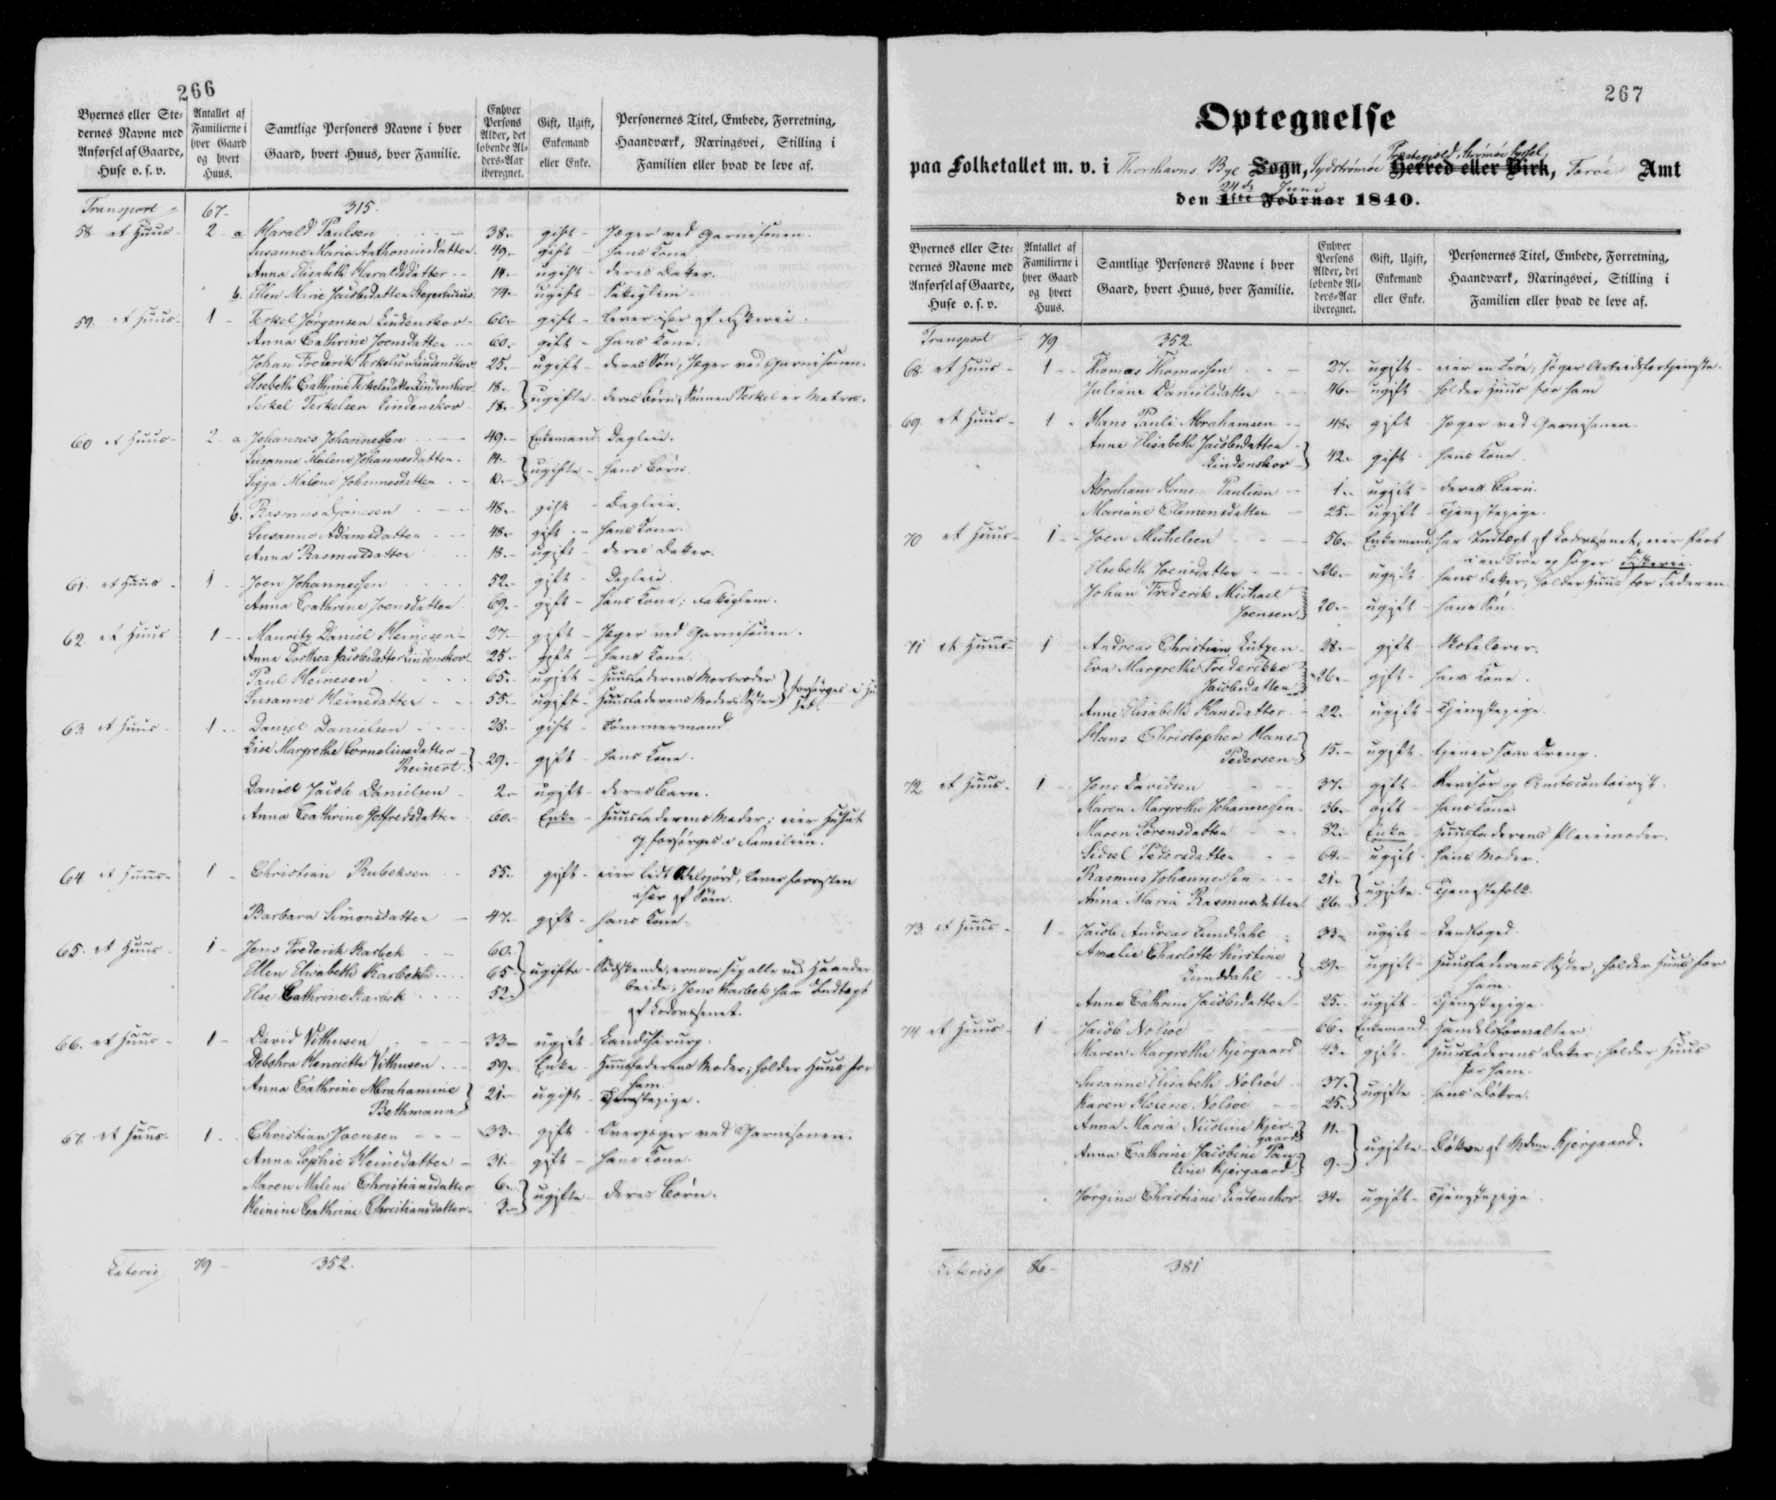 266
Byernes eller Ste-
dernes Navne med
Anførsel af Gaarde,
Huse o. s. v.
Antallet af
Familierne i
hver Gaard
og hvert
Huus.
Samtlige Personers Navne i hver
Gaard, hvert Huus, hver Familie.
Enhver
Persons
Alder, det
løbende Al-
ders-Aar
iberegnet.
Gift, Ugift,
Enkemand
eller Enke.
Personernes Titel, Embede, Forretning,
Haandværk, Næringsvei, Stilling i
Familien eller hvad de leve af.
Transport 67 315.
58 et Huus 2 a Harald Paulsen 38 gift Jæger ved Garnisonen.
Susanne Maria Anthoniusdatter 49 gift hans Kone
Anna Elisabeth Haraldsdatter 14 ugift deres Datter.
b. Ellen Marie Jacobsdatter 74 ugift Fattiglem
59. et Huus 1 Terkel Jørgensen Lindenskov 60 gift lever især af Fiskerie.
Anna Cathrine Joensdatter 60 gift hans Kone.
Johan Frederik Terkelsen Lindenskov 25 ugift deres Søn, Jæger ved Garnisonen.
Elsebeth Cathrine Terkelsdatter Lindenskov 18
Terkel Terkelsen Lindenskov 18 ugifte deres Børn, Sønnen Terkel er Matros.
60 et Huus 2 a Johannes Johannesen 49 Enkemand Dagleier.
Susanne Malene Johannesdatter 14
Sigga Malene Johannesdatter 10 ugifte hans Børn
b. Rasmus 48 gift Dagleier.
Susanne Adamsdatter 48 gift hans Kone
Anna Rasmusdatter 18 ugift deres Datter.
61. et Huus 1 Joen Johannesen 52 gift Dagleier
Anna Cathrine Joensdatter 69 gift hans Kone; Fattiglem.
62 et Huus 1 Mauritz Daniel Heinesen 27 gift Jæger ved Garnisonen.
Anne Dorthea Jacobsdatter Lindenskov 25 gift hans Kone
Paul Heinesen 65 ugift Huusfaderens Morbroder
Susanne Heinesdatter 55 ugift Huusfaderens Moders Søster forsørges i Hu
set.
63 et Huus 1 Daniel Danielsen 28 gift Tømmermand
Lise Margrethe Corneliusdatter
Reinert 29 gift hans Kone.
Daniel Jacob Danielsen 2 ugift deres Barn.
Anna Cathrine Jofredsdatter 60 Enke Huusfaderens Moder; eier Huset
og forsørges i Familien.
64 et Huus 1 Christian Rubeksen 55 gift eier lidt Odelsjord, lever forresten
især af Søen.
Barbara Simonsdatter 47 gift hans Kone
65. et Huus 1 Jens Frederik Harbek 60
Ellen Elisabeth Harbek 65 ugifte Sødskende, ernære sig alle ved Haandar
beide; Jens Harbek har Indtægt
af Fattigvæsenet.
Else Cathrine Harbek 52
66. et Huus 1 David Vithusen 33 ugift Landchirurg.
Debohra Henriette Vithusen 59 Enke Huusfaderens Moder; holder Huus for
ham
Anna Cathrine Abrahamine
Bethmann 21 ugift Tjenestepige.
67. et Huus 1 Christian Joensen 33 gift Overjæger ved Garnisonen.
Anna Sophie Heinesdatter 31 gift hans Kone.
Maren Malene Christiansdatter 6
Heinine Cathrine Christiansdatter 3 ugifte deres Børn.
Lateris 79 352.
267
Optegnelse
paa Folketallet m. v. i Thorshavns Bye Sogn, Sydstrømøe Præstegield, Strømøe Syssel, Herred eller Birk, Færøe Amt
den 24de Juni 1ste Februar 1840.
Byernes eller Ste-
dernes Navne med
Anførsel af Gaarde,
Huse o. s. v.
Antallet af
Familierne i
hver Gaard
og hvert
Huus.
Samtlige Personers Navne i hver
Gaard, hvert Huus, hver Familie.
Enhver
Persons
Alder, det
løbende Al-
ders-Aar
iberegnet.
Gift, Ugift,
Enkemand
eller Enke.
Personernes Titel, Embede, Forretning,
Haandværk, Næringsvei, Stilling i
Familien eller hvad de leve af.
Transport 79 352
68 et Huus 1 Thomas Thomassen 27 ugift eier en Kroe, søger Arbeidsfortjeneste.
Juliane Danielsdatter 46 ugift holder Huus for ham
69 et Huus 1 Hans Pauli Abrahamsen 48 gift Jæger ved Garnisonen
Anne Elisabeth Jacobsdatter
Lindenskov 42 gift hans Kone.
Abraham Hans Paulisen 1 ugift deres Barn.
Mariane Clemensdatter 25 ugift Tjenestepige.
70 et Huus 1 Joen Michelsen 56 Enkemand har Indtægt af
Fiskerie.
Elsebeth Joensdatter 26 ugift hans Datter, holder Huus for Faderen
Johan Frederik Michael
Joensen 20 ugift hans Søn.
71 et Huus 1 Andreas Christian Lützen 28 gift Skolelærer.
Eva Margrethe Frederikke
Jacobsdatter 26 gift hans Kone.
Anne Elisabeth Hansdatter 22 ugift Tjenestepige
Hans Christopher Hans
Pedersen 15 ugift tjener som Dreng.
72 et Huus 1 Jens Davidsen 37 gift Revisor og Amtscontoirist.
Maren Margrethe Johannesen 36 gift hans Kone
Maren Sørensdatter 82 Enke Huusfaderens Pleiemoder.
Sidsel Pedersdatter 64 ugift hans Moder.
Rasmus Johannesen 21
Anna Maria Rasmusdatter 26 ugifte Tjenestefolk.
73. et Huus 1 Jacob Andreas Lunddahl 33 ugift Landfoged.
Amalie Charlotte Kirstine
Lunddahl 29 ugift Huusfaderens Søster, holder Huus for
ham.
Anne Cathrine Jacobsdatter 25 ugift Tjenestepige
74 et Huus 1 Jacob Nolsøe 66 Enkemand Handelsforvalter
Maren Margrethe Kjergaard 43 gift Huusfaderens Datter; holder Huus
for ham
Susanne Elisabeth Nolsøe 37
Karen Helene Nolsøe 25 ugifte hans Døttre.
Anna Maria Nicoline Kjer
gaard 11
Anna Cathrine Jacobine Pau
line Kjergaard 9 ugifte Døttre af Mdm Kjergaard.
Jørgine Christiane Lindenskov 34 ugift Tjenestepige.
Lateris 86 381